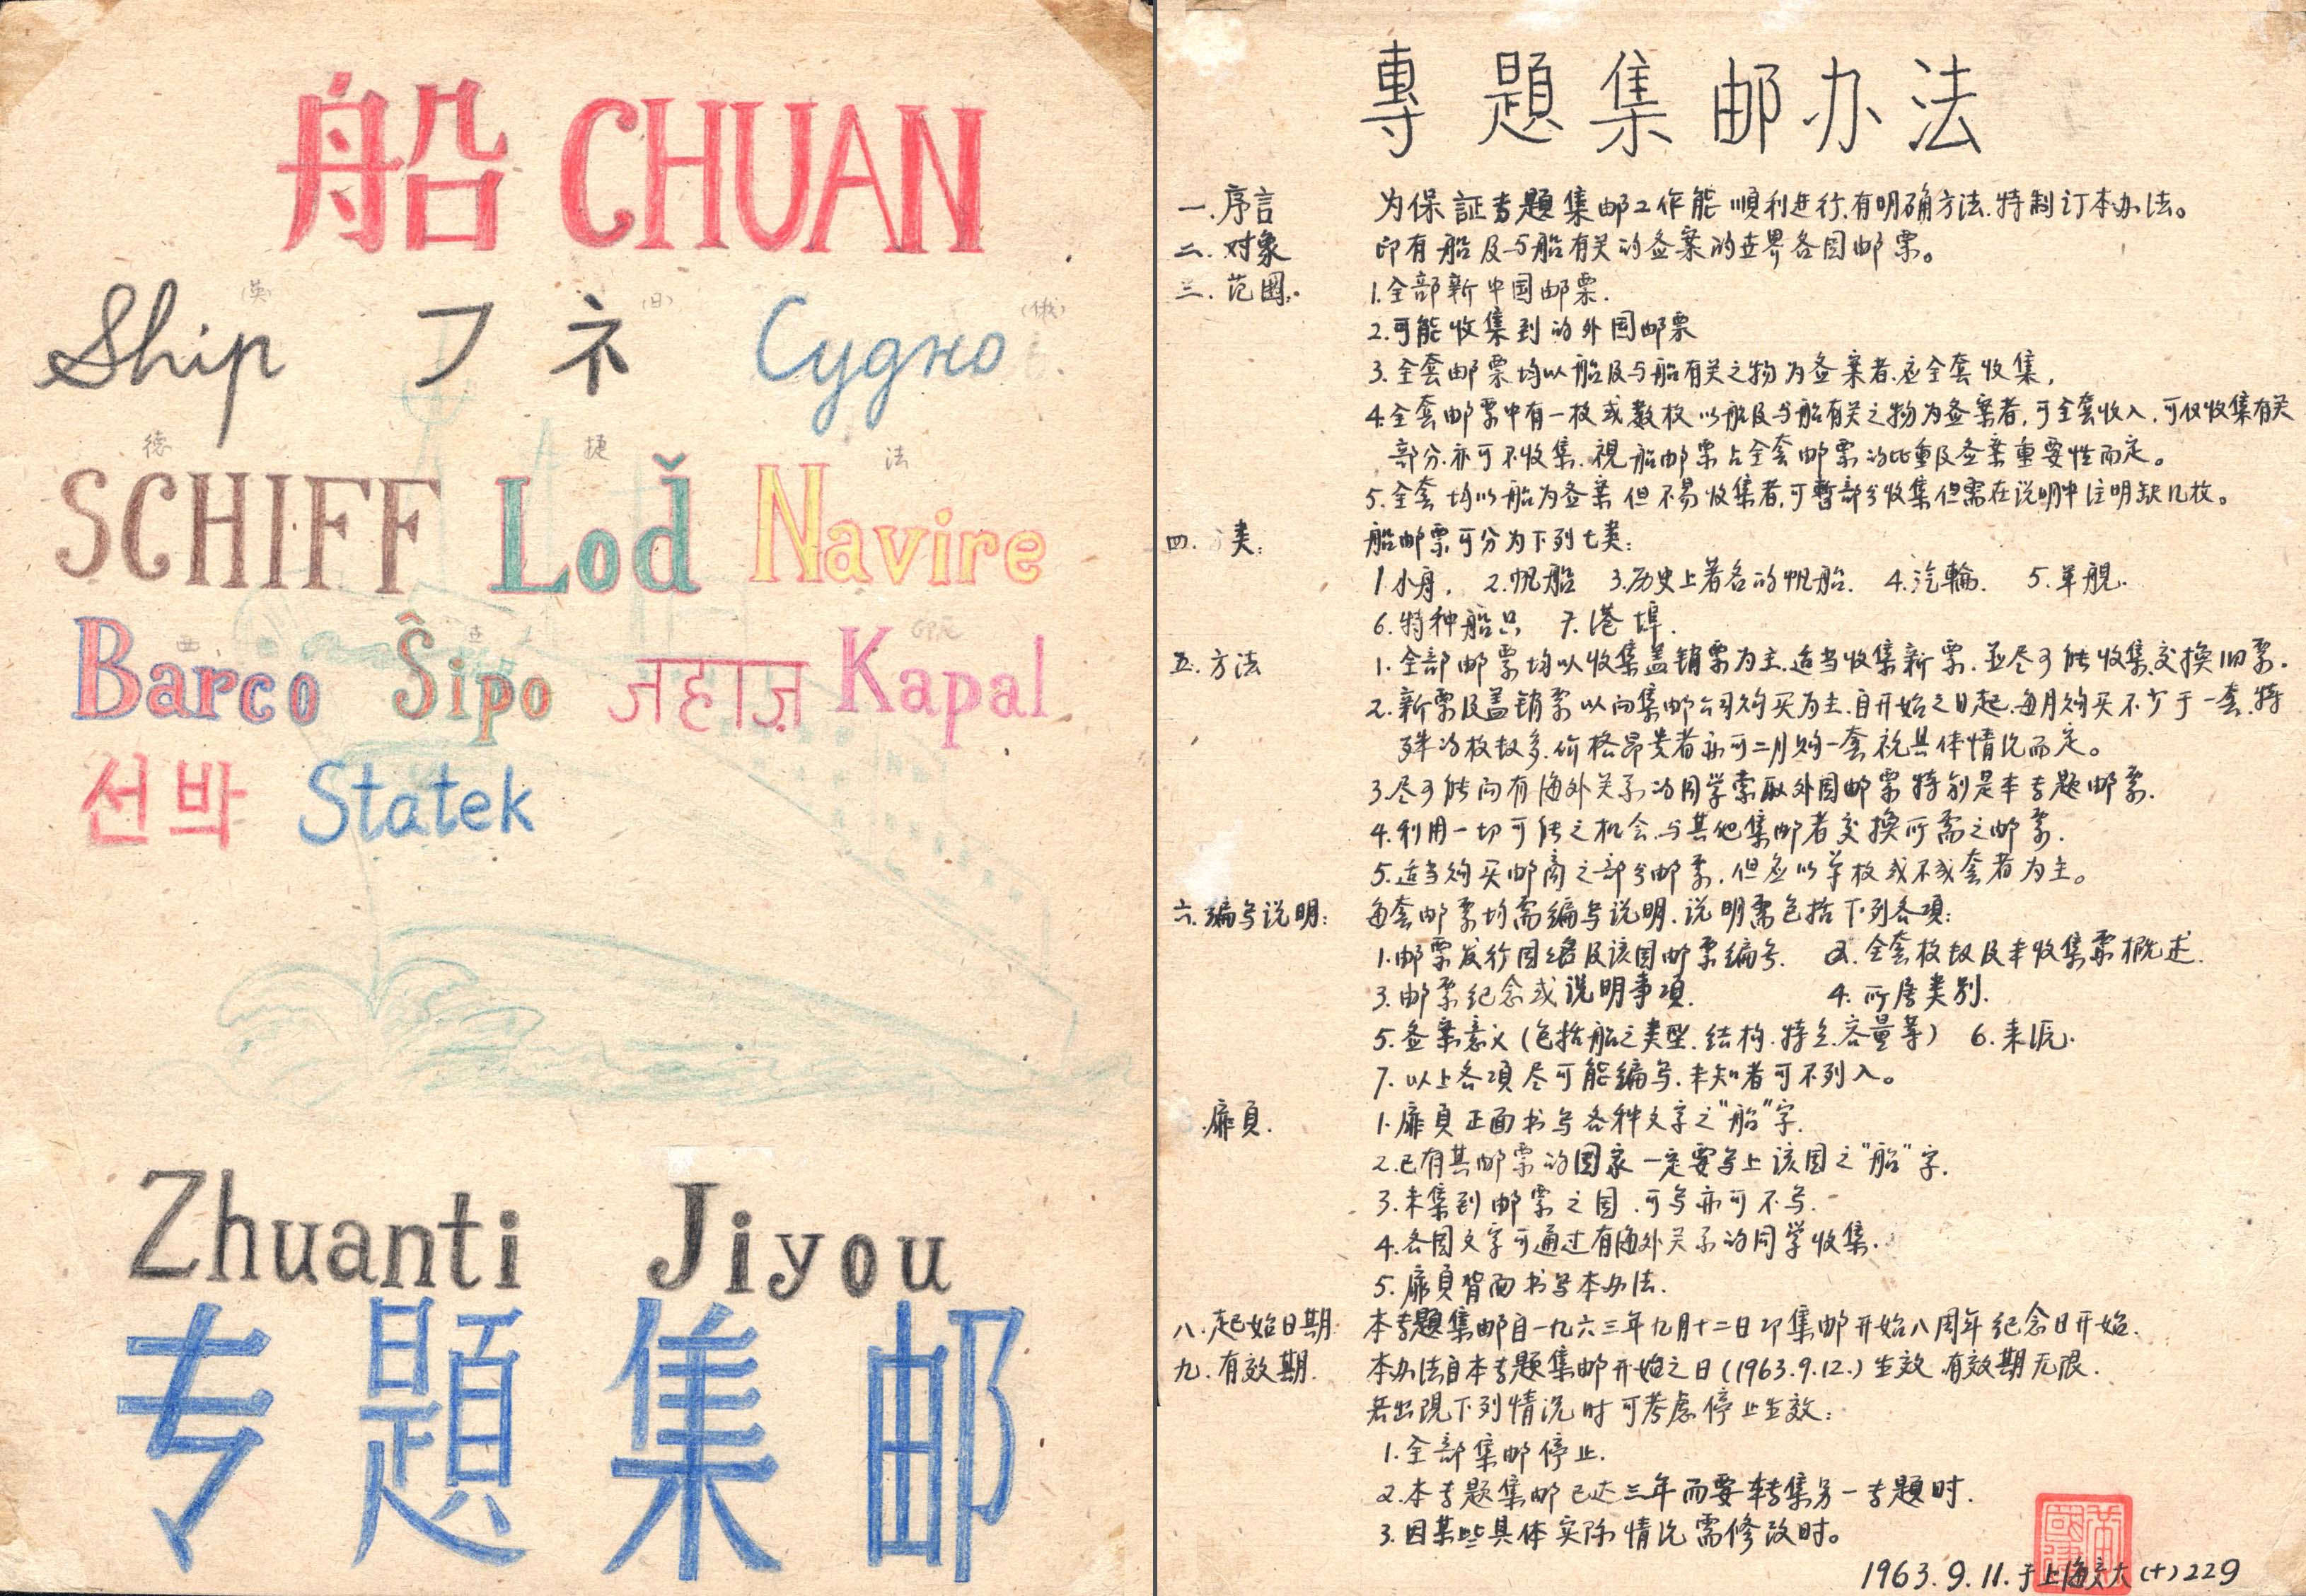 船 CHUAN
(英) (日) (俄)
Ship フネ Судно
德 捷 法
SCHIFF Loď Navire
西 世 印尼
Barco Ŝipo जहाज़ Kapal
선박 Statek
Zhuanti Jiyou
专題集邮
專題集邮办法
一.序言 为保証专題集邮工作能順利进行,有明确方法.特制订本办法。
二.对象 印有船及与船有关的图案的世界各国邮票。
三.范围. 1.全部新中国邮票.
2.可能收集到的外国邮票
3.全套邮票均以船及与船有关之物为图案者.应全套收集,
4.全套邮票中有一枚或数枚以船及与船有关之物为图案者,可全套收入,可仅收集有关
部分.亦可不收集.視船邮票占全套邮票的比重及图案重要性而定。
5.全套均以船为图案但不易收集者,可暫部分收集但需在说明中注明缺几枚。
四. 类: 船邮票可分为下列七类:
1.小舟. 2.帆船 3.历史上著名的帆船. 4.汽輪. 5.军舰.
6.特种船只 7.港埠.
五.方法 1.全部邮票均以收集盖销票为主.适当收集新票.並尽可能收集交换旧票.
2.新票及盖销票以向集邮公司购买为主.自开始之日起.每月购买不少于一套.特
殊的枚数多.价格昂贵者亦可二月购一套視具体情况而定。
3.尽可能向有海外关系的同学索取外国邮票特别是本专题邮票.
4.利用一切可能之机会.与其他集邮者交换所需之邮票.
5.适当购买邮商之部分邮票.但应以单枚或不成套者为主。
六.編写说明: 每套邮票均需編写说明.说明需包括下列各項:
1.邮票发行国名及该国邮票編号. 2.全套枚数及未收集票概述.
3.邮票纪念或说明事項. 4.所屬类别.
5.图案意义(包括船之类型.结构.特点.容量等) 6.来源.
7.以上各項尽可能編写.未知者可不列入。
.扉頁. 1.扉頁正面书写各种文字之"船"字.
2.已有其邮票的国家一定要写上该国之"船"字.
3.未集到邮票之国.可写亦可不写.
4.各国文字可通过有海外关系的同学收集.
5.扉頁背面书写本办法.
八.起始日期 本专題集邮自一九六三年九月十二日即集邮开始八周年纪念日开始.
九.有效期. 本办法自本专题集邮开始之日(1963.9.12.)生效.有效期无限.
若出現下列情况时可考慮停止生效:
1.全部集邮停止.
2.本专题集邮已达三年而要转集另一专題时.
3.因某些具体实际情况需修改时。
1963.9.11.于上海交大(十)229